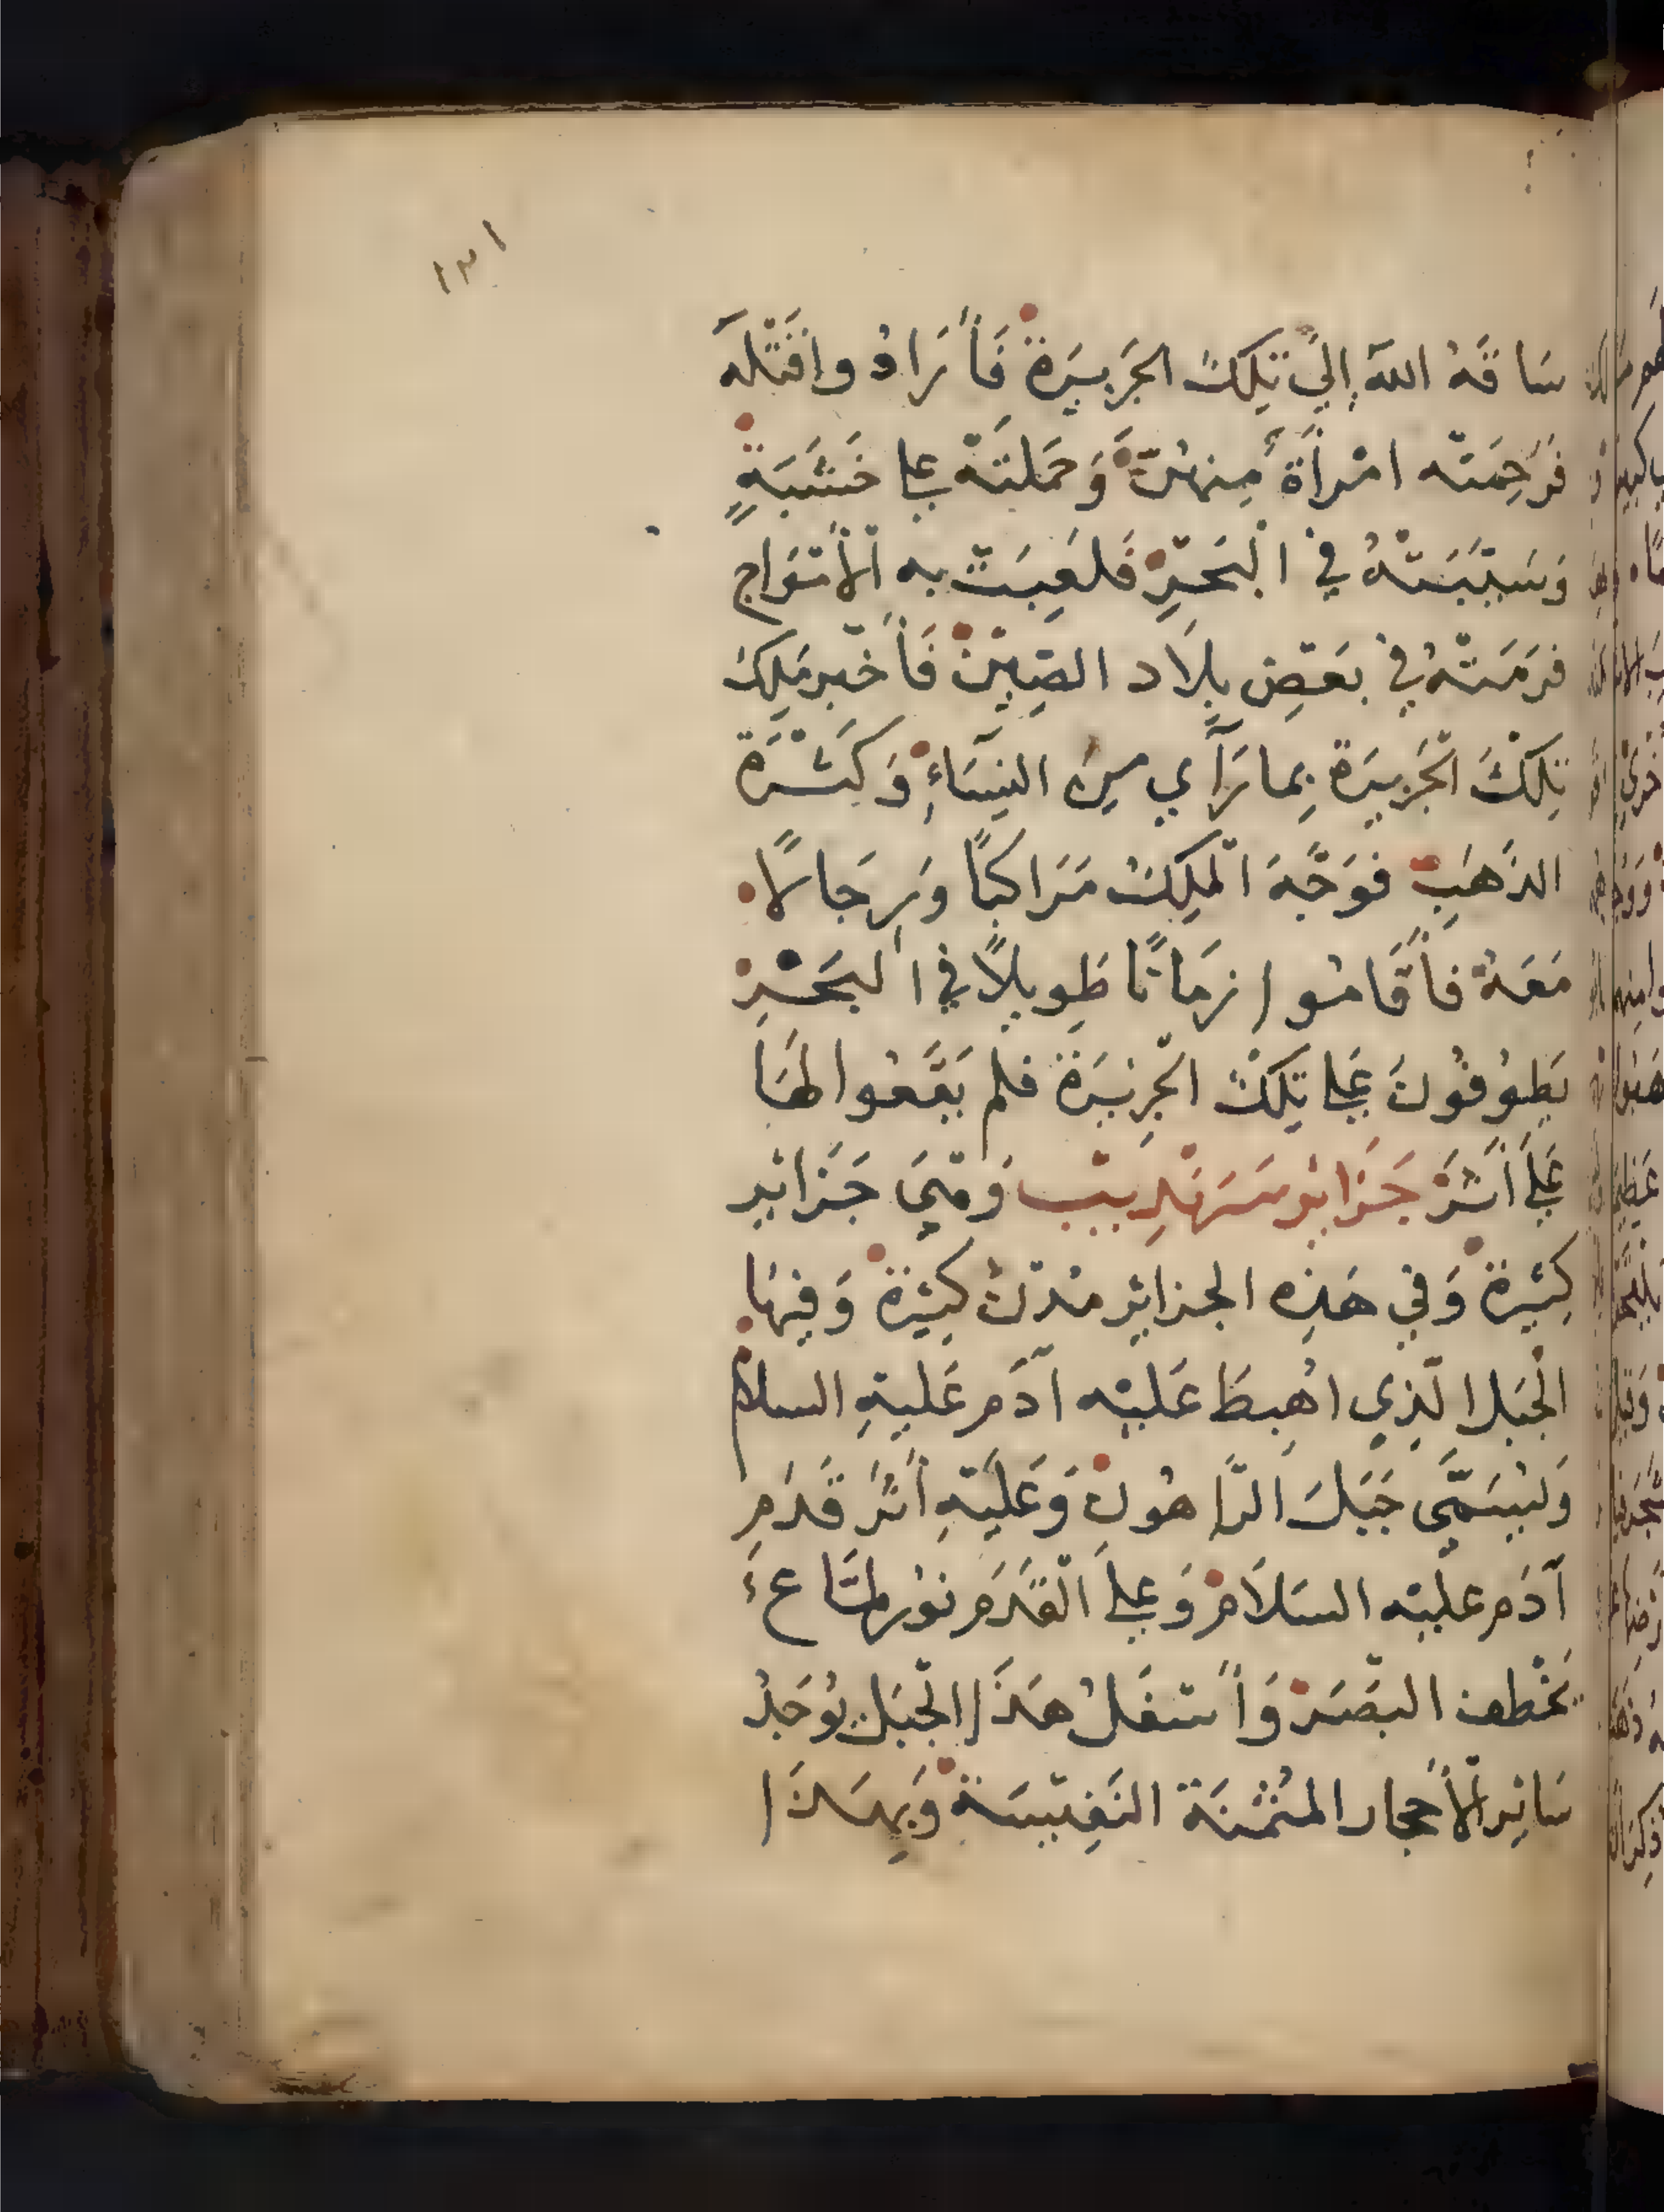 ١٣١
سَاقَهُ اللهُ إِلَى تِلْكَ الجَزِيرَة فَأَرَادُوا قَتْلَهُ
فَرَحِمَتْه امْرَأَة مِنهُنَّ وَحَمَلَتْهُ عَلَى خَشَبَةٍ
وَسَيَّبَتْهُ في الْبَحَرِ فَلَعِبَتْ به الْأَمْوَاج
فَرَمَتْهُ في بَعَضِ بِلَاد الصِين فَأَخْبر مَلِكَ
تِلْكَ الجَزِيرَة بِما رَآي مِنَ النِسَاءِ وَكَثْرَة
الذَهَبِ فوَجَّهَ الْمَلِكُ مَرَاكبًا وَرِجَالًا
مَعَهُ فَأَقَامُوا زمَانًا طَوِيلًا في البَحْرِ
يَطوُفُونَ عَلى تِلْكَ الجَزِيرَة فلم يَقَعُوا لهَا
عَلَى أَثَرْ جَزائر سَرَنْدِيبْ وَهْيَ جَزائر
كَثِيرة وَفي هَذِه الجزائِر مُدُنْ كثِيرَة وَفِيهَا
الْجَبَل الَّذِي اهُبِطَ عَليْه آدَم عَليْهِ السلام
وَيُسَمَّى جَبَلَ الرَّاهُون وَعَلَيْهِ أَثَرُ قَدَمِ
آدَم عليْه السَلَام وَعلى الْقَدَم نوُر لمَّاعٌ
يَخْطف البَصَر وَأَسْفَلُ هَذَا الْجَبَل يوُجَدُ
سَائِر الْأَحجار المُثْمَنَة النَفِيسَة وَبِهَذَا